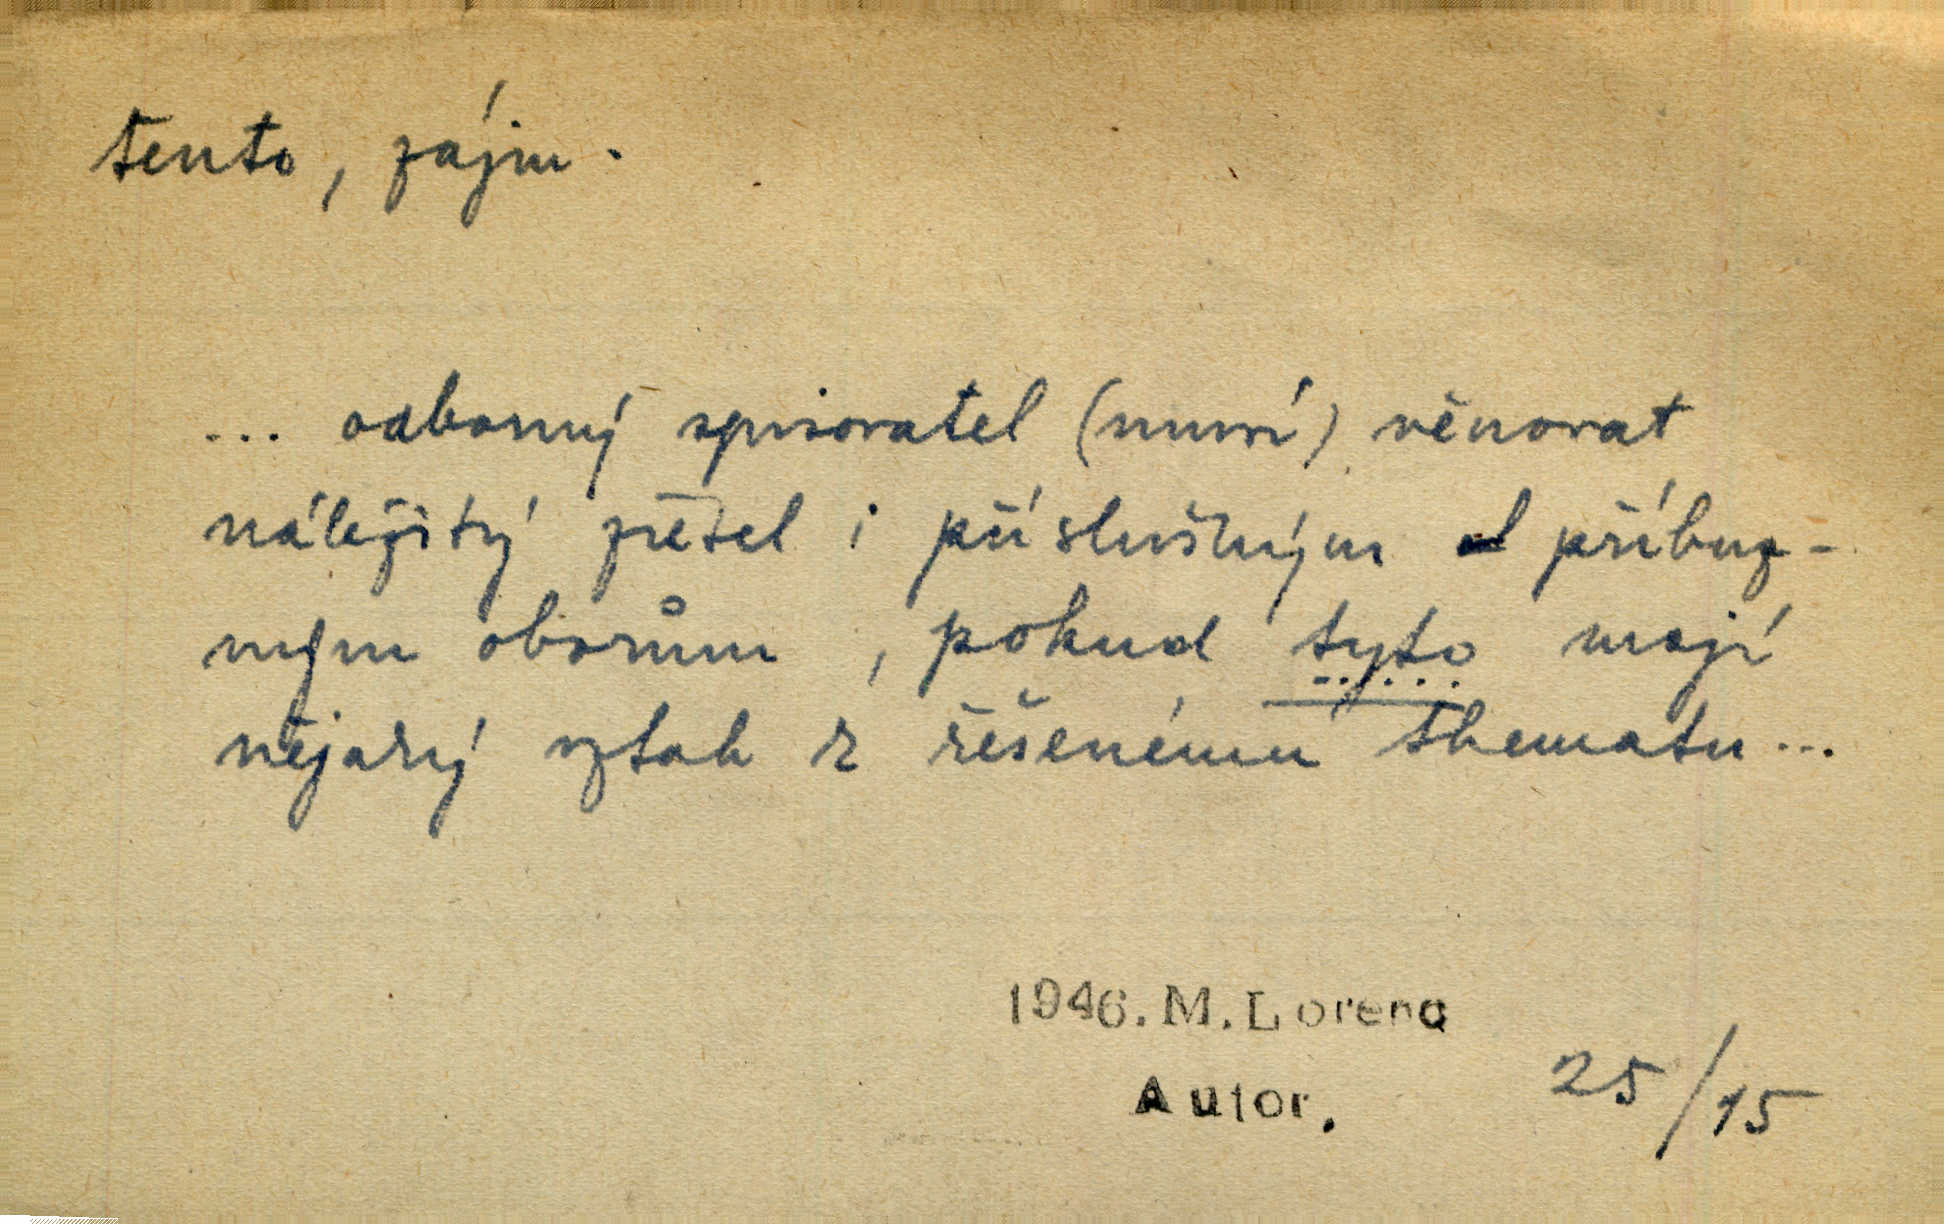 tento, zájm.
... odborný spisovatel (musí) věnovat
náležitý zřetel i příslušným příbuz-
ným oborům, pokud tyto mají
nějaký vztah k řešenému thematu...
1946. M. Lorenc
Autor.
25/15